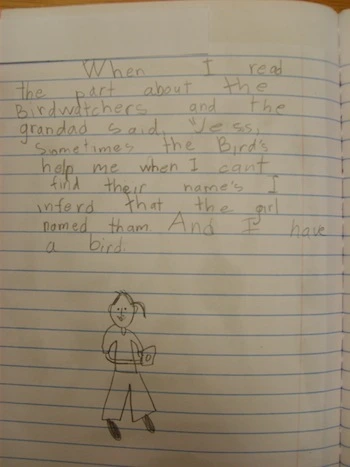 When I read
the part about the
Birdwatchers and the
grandad said, "Jeiss,
Sometimes the Bird's
help me when I cant
find their name's I
inferd that the girl
named tham. And I have
a bird.